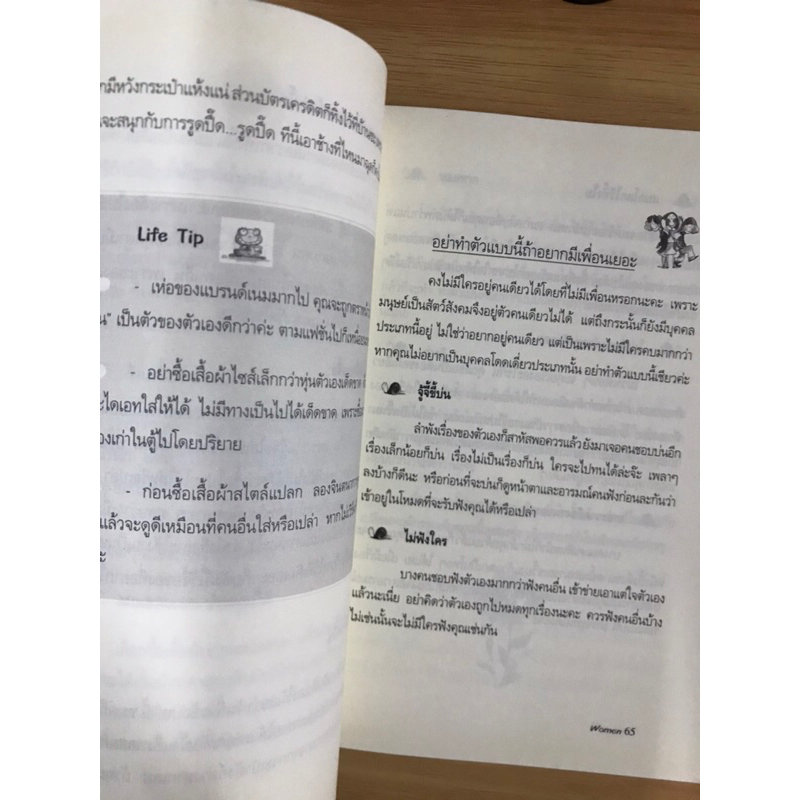 กมีหวังกระเป๋าแห้งแน่ ส่วนบัตรเครดิตก็ทิ้งไว้ที่บ้าน
จะสนุกกับการรูดปื๊ด...รูดปื๊ด ทีนี้เอาช้างที่ไหนมาฉุด
Life Tip
- เห่อของแบรนด์เนมมากไป คุณจะถูกตราหน้า
น" เป็นตัวของตัวเองดีกว่าค่ะ ตามแฟชั่นไปก็เหนื่อย
- อย่าซื้อเสื้อผ้าไซส์เล็กกว่าหุ่นตัวเองเด็ดขาด
ะไดเอทใส่ให้ได้ ไม่มีทางเป็นไปได้เด็ดขาด เพราะ
องเก่าในตู้ไปโดยปริยาย
- ก่อนซื้อเสื้อผ้าสไตล์แปลก ลองจินตนาการ
แล้วจะดูดีเหมือนที่คนอื่นใส่หรือเปล่า หากไม่
ะ
อย่าทำตัวแบบนี้ถ้าอยากมีเพื่อนเยอะ
คงไม่มีใครอยู่คนเดียวได้โดยที่ไม่มีเพื่อนหรอกนะคะ เพราะ
มนุษย์เป็นสัตว์สังคมจึงอยู่ตัวคนเดียวไม่ได้ แต่ถึงกระนั้นก็ยังมีบุคคล
ประเภทนี้อยู่ ไม่ใช่ว่าอยากอยู่คนเดียว แต่เป็นเพราะไม่มีใครคบมากกว่า
หากคุณไม่อยากเป็นบุคคลโดดเดี่ยวประเภทนั้น อย่าทำตัวแบบนี้เชียวค่ะ
จู้จี้ขี้บ่น
ลำพังเรื่องของตัวเองก็สาหัสพอควรแล้วยังมาเจอคนชอบบ่นอีก
เรื่องเล็กน้อยก็บ่น เรื่องไม่เป็นเรื่องก็บ่น ใครจะไปทนได้ล่ะจ๊ะ เพลาๆ
ลงบ้างก็ดีนะ หรือก่อนที่จะบ่นก็ดูหน้าตาและอารมณ์คนฟังก่อนละกันว่า
เข้าอยู่ในโหมดที่จะรับฟังคุณได้หรือเปล่า
ไม่ฟังใคร
บางคนชอบฟังตัวเองมากกว่าฟังคนอื่น เข้าข่ายเอาแต่ใจตัวเอง
แล้วนะเนี่ย อย่าคิดว่าตัวเองถูกไปหมดทุกเรื่องนะคะ ควรฟังคนอื่นบ้าง
ไม่เช่นนั้นจะไม่มีใครฟังคุณเช่นกัน
Women 65